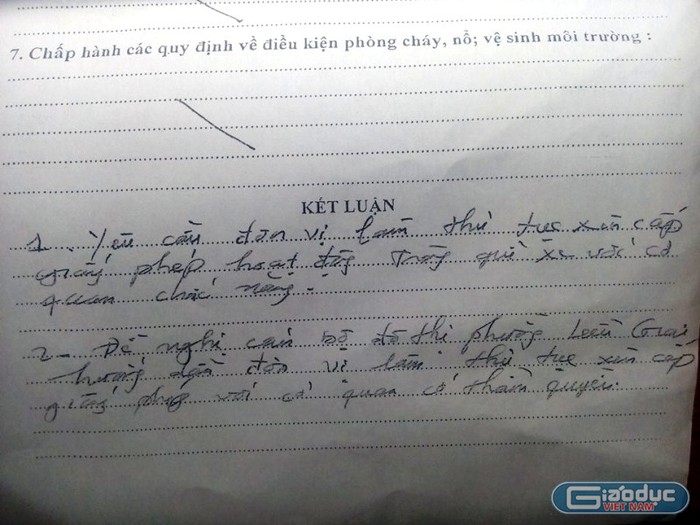 7. Chấp hành các quy định về điều kiện phòng cháy, nổ; vệ sinh môi trường :
KẾT LUẬN
1. Yêu cầu đơn vị làm thủ tục xin cấp
giấy phép hoạt động trông giữ xe với cơ
quan chức năng.
2- Đề nghị cán bộ đô thị phường Liễu Giai
hướng dẫn đơn vị làm thủ tục xin cấp
giấy phép với cơ quan có thẩm quyền.
Giáoduc
VIỆT NAM